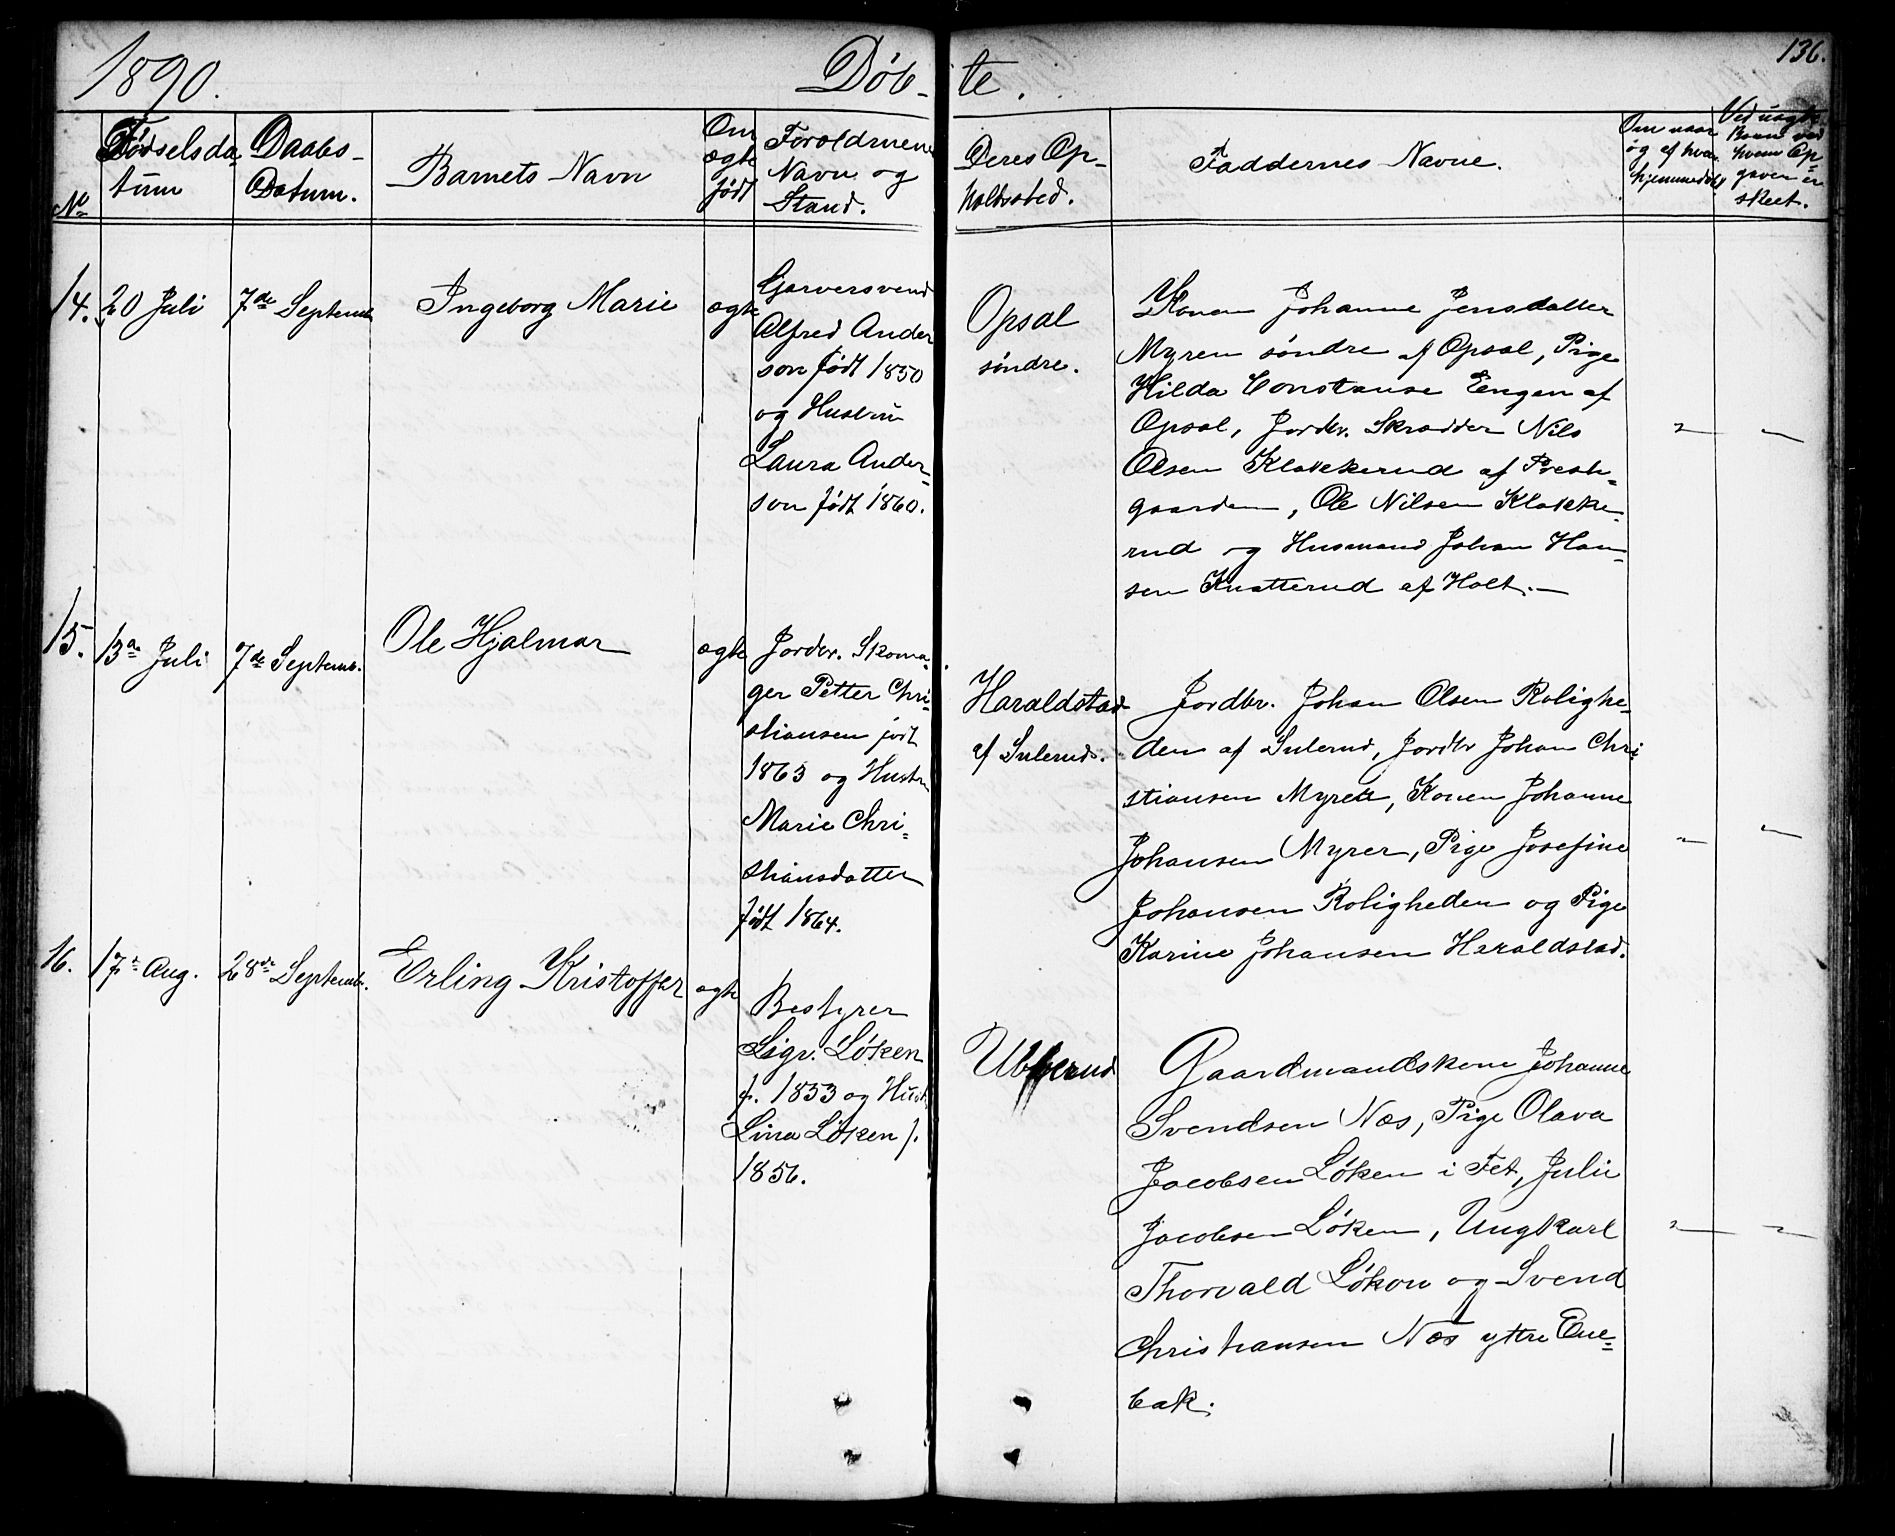 1890.
Døb-
te.
136.
No
Fødselsda-
tum
Daabs-
Datum.
Barnets Navn
Om
ægte
født
Forældrenes
Navn og
Stand.
Deres Op-
holdssted.
Faddernes Navne.
Om naar
og af hvem
hjemmedøbt
Ved uægte
Børn ved
hvem Op-
gaven er
skeet.
14.
20 Juli
7de Septemb
Ingeborg Marie
ægte
Garversvend
Alfred Ander
son født 1850
og Hustru
Laura Ander-
son født 1860.
Opsal
søndre.
Konen Johanne Jensdatter
Myren søndre af Opsal, Pige
Hilda Constanse Engen af
Opsal, Jordbr. Skrædder Nils
Olsen Klokkerud af Prest-
gaarden, Ole Nilsen Klokke-
rud og Husmand Johan Han-
sen Knatterud af Holt. —
15.
13de Juli
7de Septemb.
Ole Hjalmar
ægte
Jordbr. Skoma-
ger Petter Chri-
stiansen født
1863 og Hustr
Marie Chri-
stiansdatter
født 1864.
Haraldstad
af Sulerud.
Jordbr. Johan Olsen Rolighe-
den af Sulerud, Jordbr Johan Chri-
stiansen Myrer, Konen Johanne
Johansen Myrer, Pige Josefine
Johansen Roligheden og Pige
Karine Johansen Haraldstad.
16.
17de Aug.
28de Septemb.
Erling Kristoffer
ægte
Bestyrer
Sigv. Løken
f. 1853 og Hust.
Lina Løken f.
1856.
Ubberud
Gaardmandskone Johanne
Svendsen Næs, Pige Olava
Jacobsen Løken i Fet, Julie
Jacobsen Løken, Ungkarl
Thorvald Løken og Svend
Christiansen Næs ytre Ene-
bak.